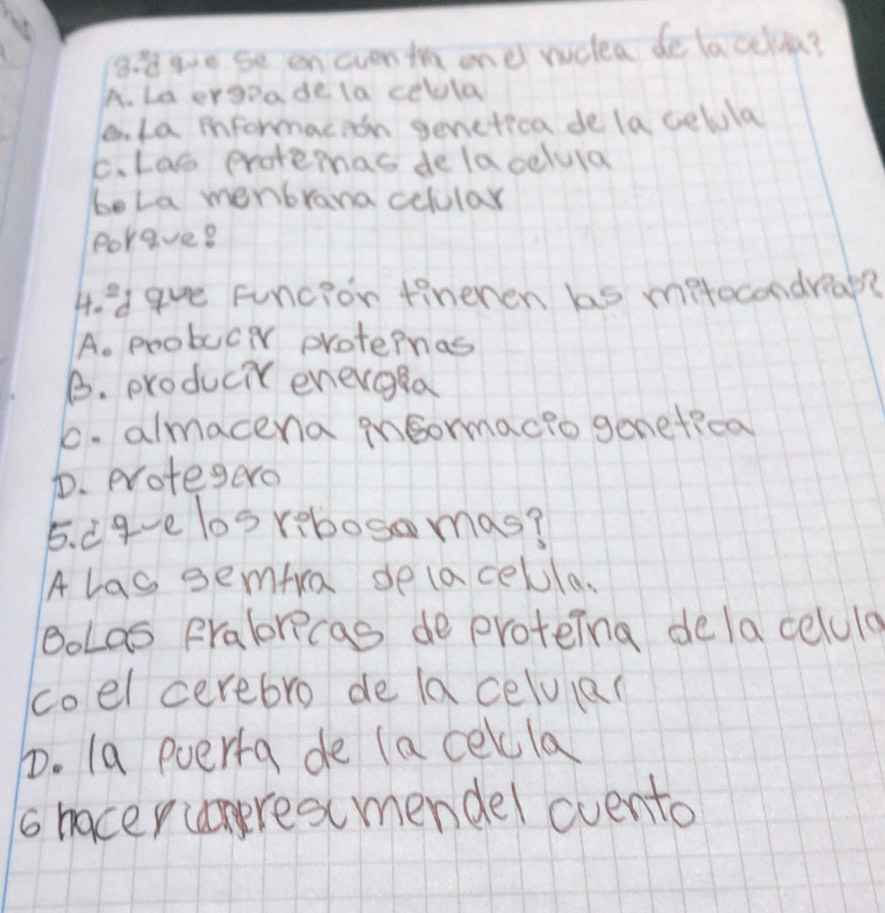 3.¿que se encuentra en el nuclea de la celula?
A. La ergia de la celula
B. La informacion genetica de la celula
C. Las proteinas de la celula
b. La menbrana celular
porque?
4.¿ que Función tinenen las mitocondrias?
A. probucir proteinas
B. producir energia
C. almacena informacio genetica
D. Protegero
5.¿que los ribosamas?
A Las semtra de la celula.
B. Las Frabricas de proteina de la celula
C. el cerebro de la celular
D. la puerta de la celula
6 hacer resumen del cuento